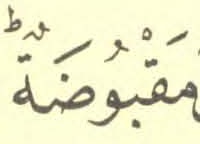 مَقْبُوضَةٌ ؕ